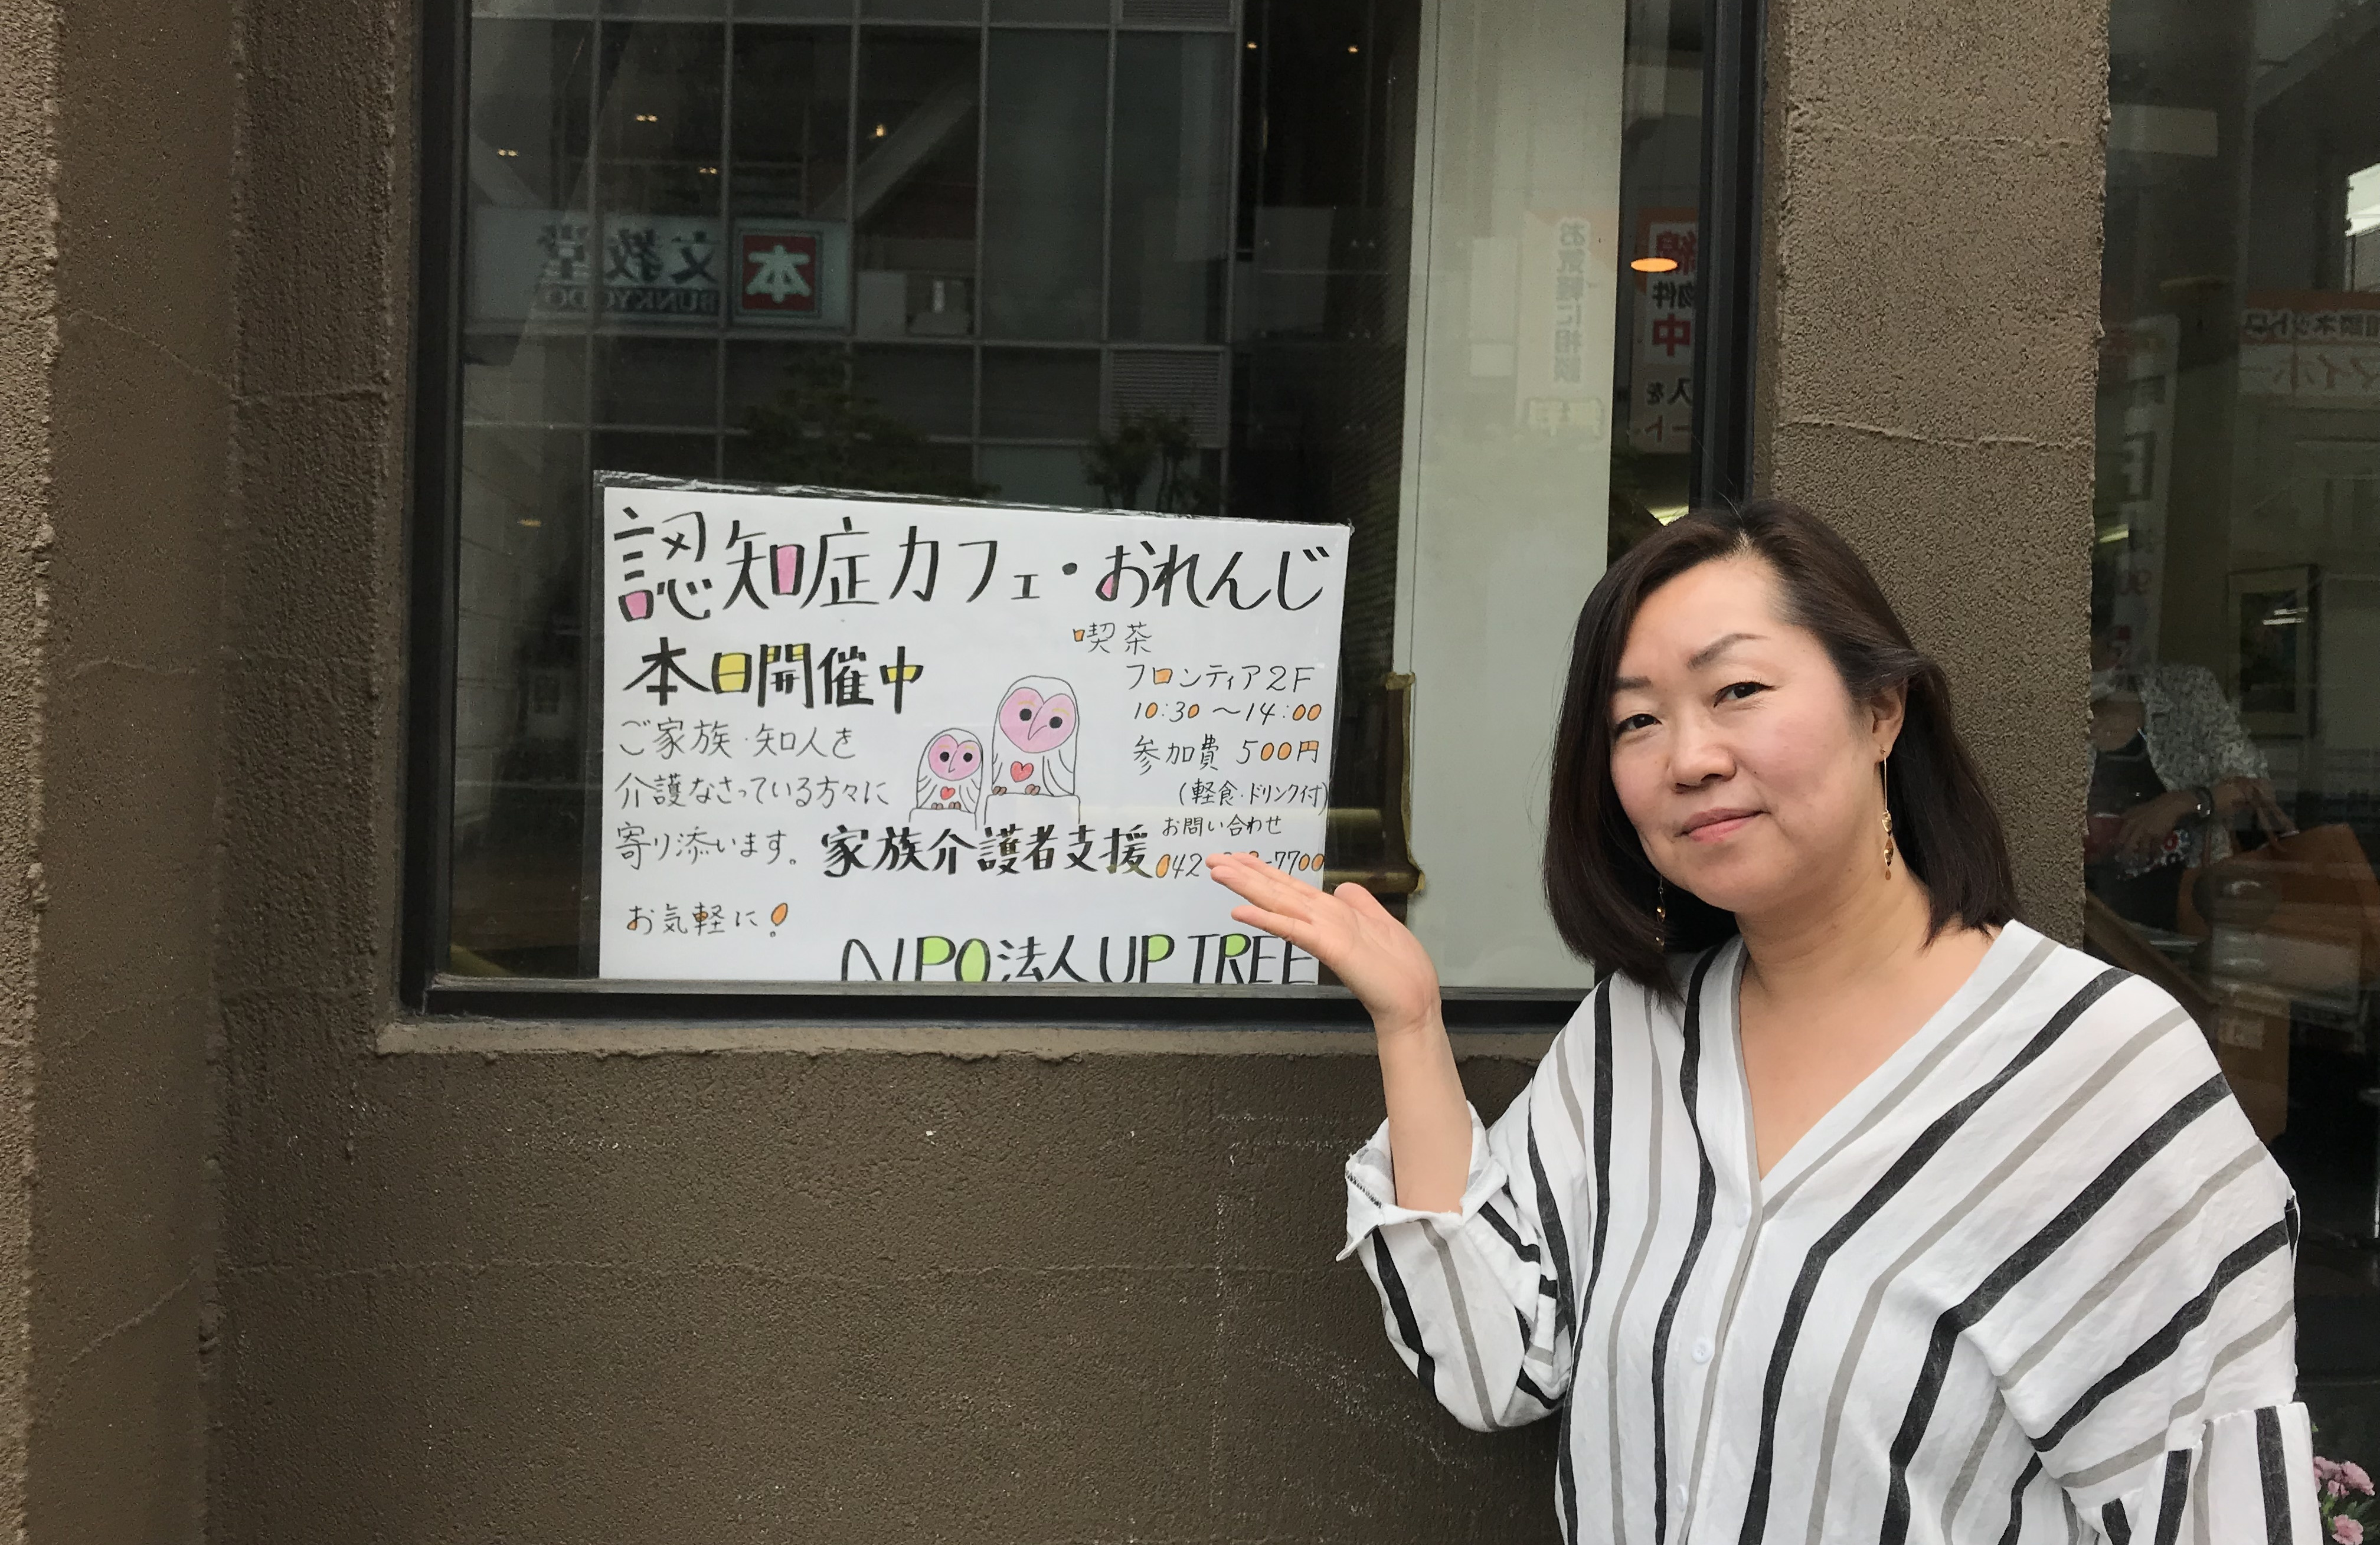 認知症カフェ・おれんじ
本日開催中
ご家族・知人を
介護なさっている方々に
寄り添います。
お気軽に!
喫茶
フロンティア2F
10:30〜14:00
参加費 500円
(軽食・ドリンク付)
お問い合わせ
042-
-7700
家族介護者支援
NPO法人UPTREE
本 文教堂
BUNKYODO
お気軽に相談
物件
中